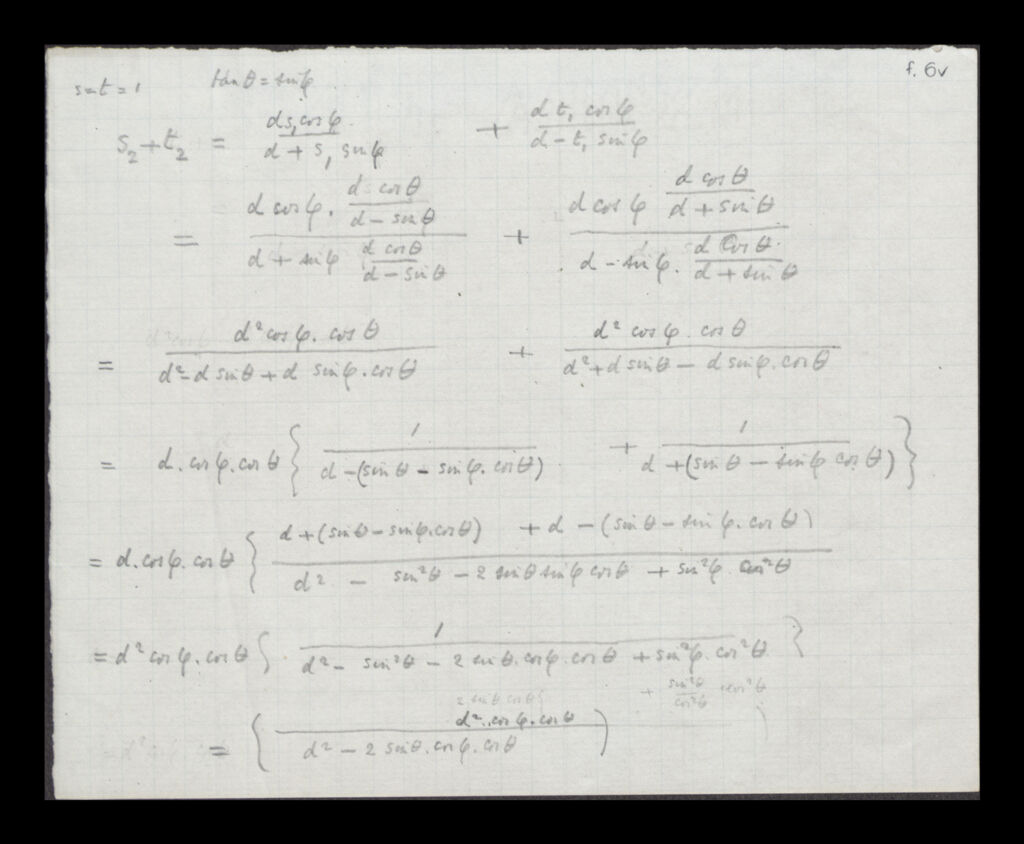 f. 6v
s=t=1 tanθ = sinφ
s₂+t₂ = ds₁cosφ / d + s₁ sinφ + dt₁ cosφ / d - t₁ sinφ
= d cosφ . d cosθ / d - sinθ / d + sinφ d cosθ / d - sinθ + d cosφ d cosθ / d + sinθ / d - sinφ . d cosθ / d + sinθ
= d² cosφ . cosθ / d² - d sinθ + d sinφ . cosθ + d² cosφ . cosθ / d² + d sinθ - d sinφ . cosθ
= d . cosφ . cosθ { 1 / d - (sinθ - sinφ . cosθ) + 1 / d + (sinθ - sinφ cosθ) }
= d . cosφ . cosθ { d + (sinθ - sinφ . cosθ) + d - (sinθ - sinφ . cosθ) / d² - sin²θ - 2 sinθ sinφ cosθ + sin²φ cos²θ
= d² cosφ . cosθ { 1 / d² - sin²θ - 2 sinθ . cosφ . cosθ + sin²φ . cos²θ }
2 sinθ cosθ + sin²θ / cos²θ cos²θ
= ( d² . cosφ . cosθ / d² - 2 sinθ . cosφ . cosθ )